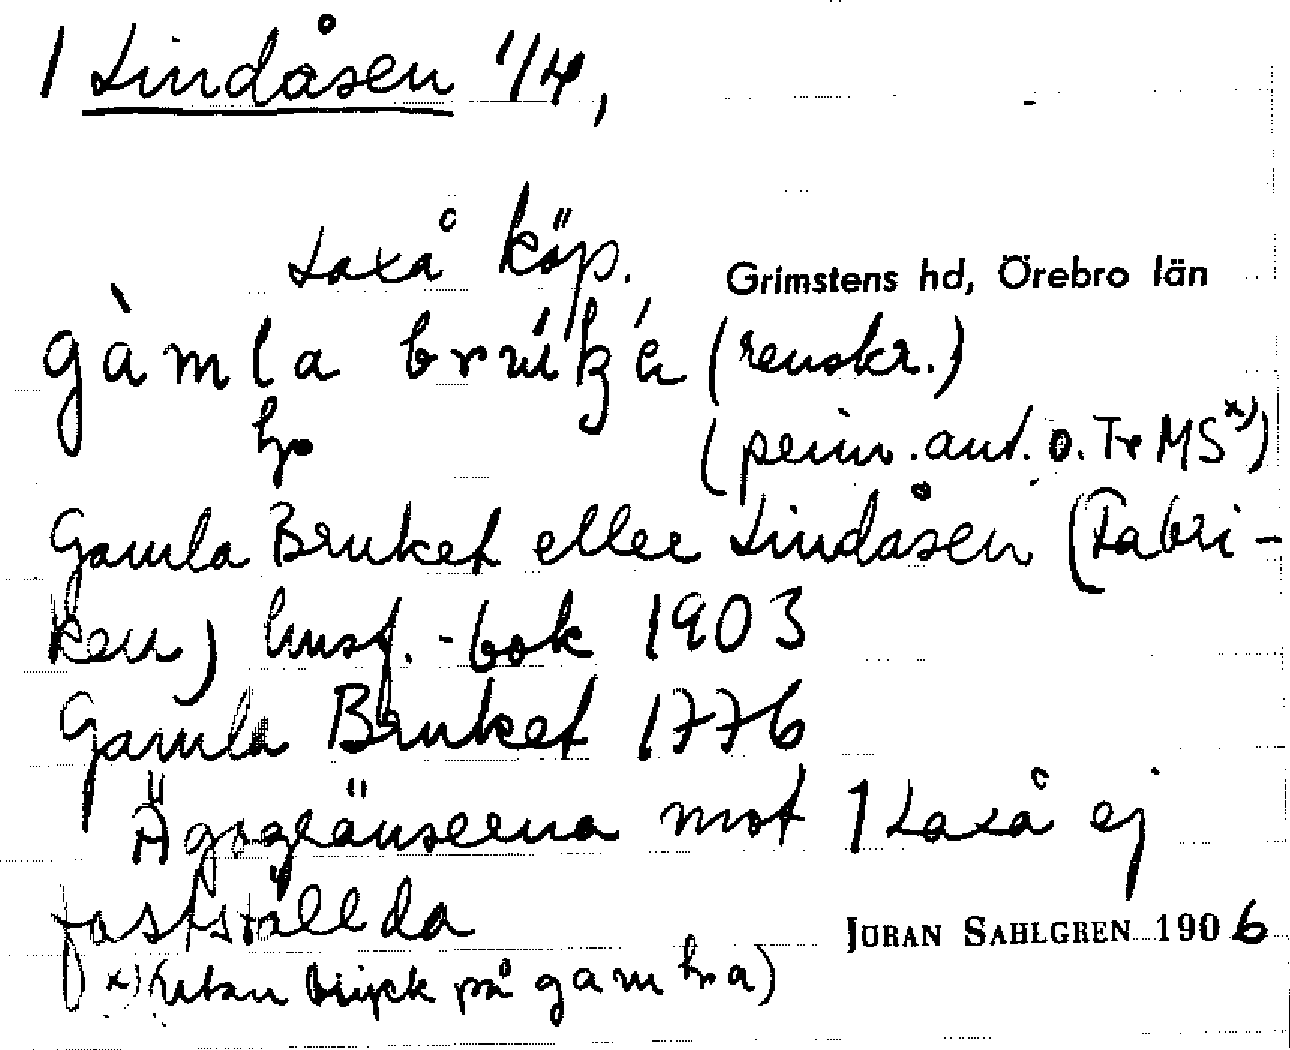 1 Lindåsen 1/4,
Laxå köp.
Grimstens hd, Örebro län
gàmla brúka (renskr.)
(penn. ant. o. Tr MS x))
Gamla Bruket eller Lindåsen (Fabri-
ken) husf.-bok 1903
Gamla Bruket 1776
Ägogränserna mot 1 Laxå ej
fastställda
JÖRAN SAHLGREN 1906
x) (utan tryck på gamla)